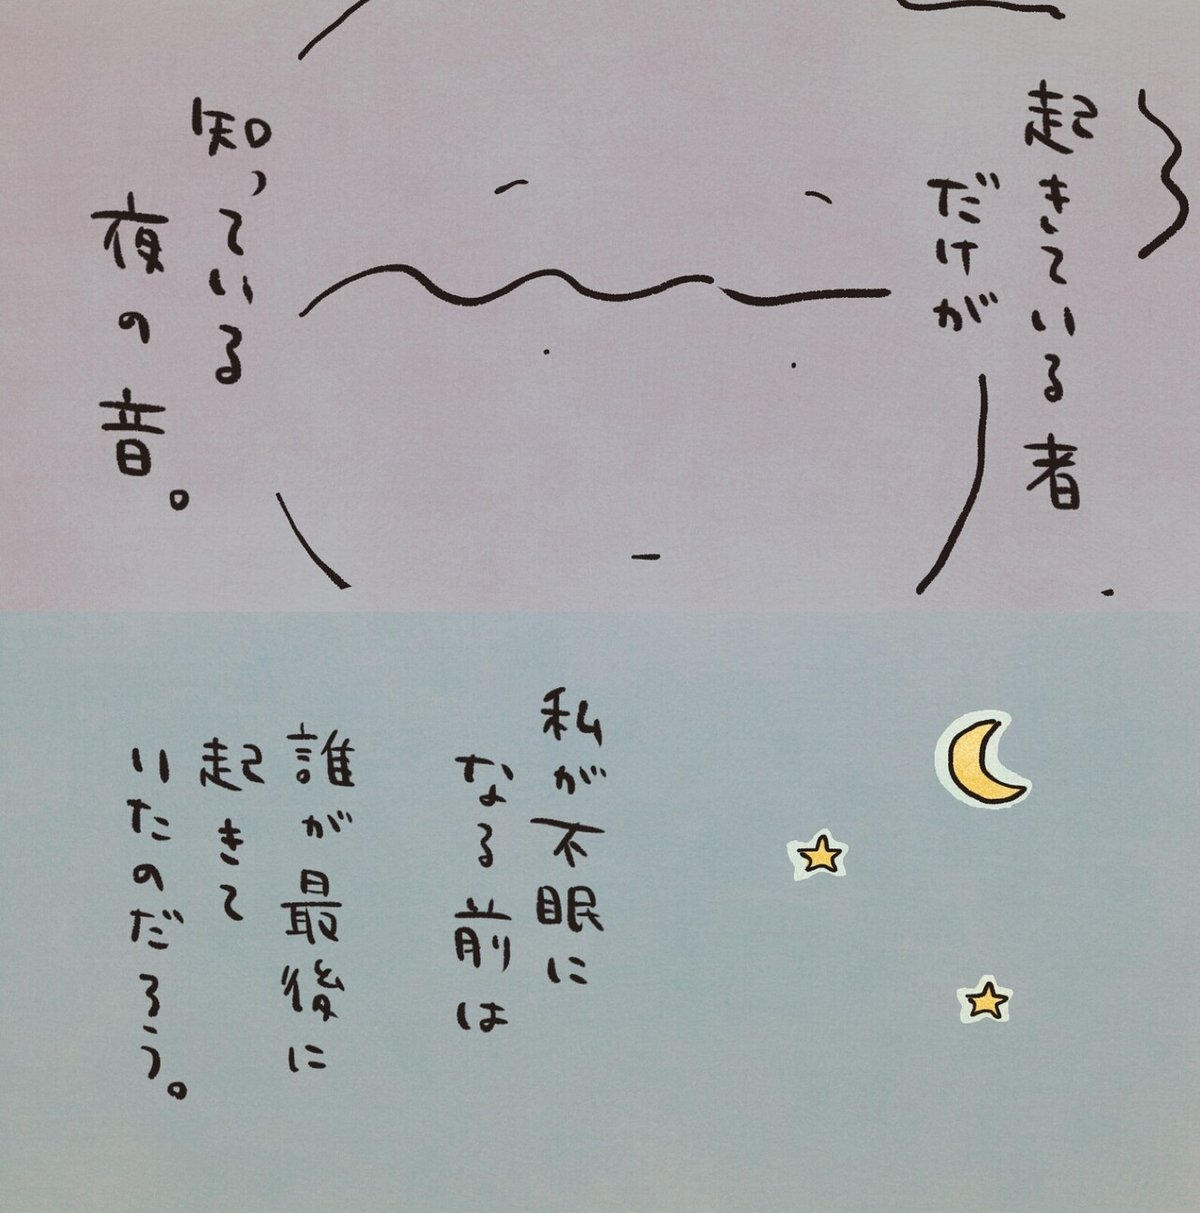 起きている者
だけが
知っている
夜の音。
私が不眠に
なる前は
誰が最後に
起きて
いたのだろう。